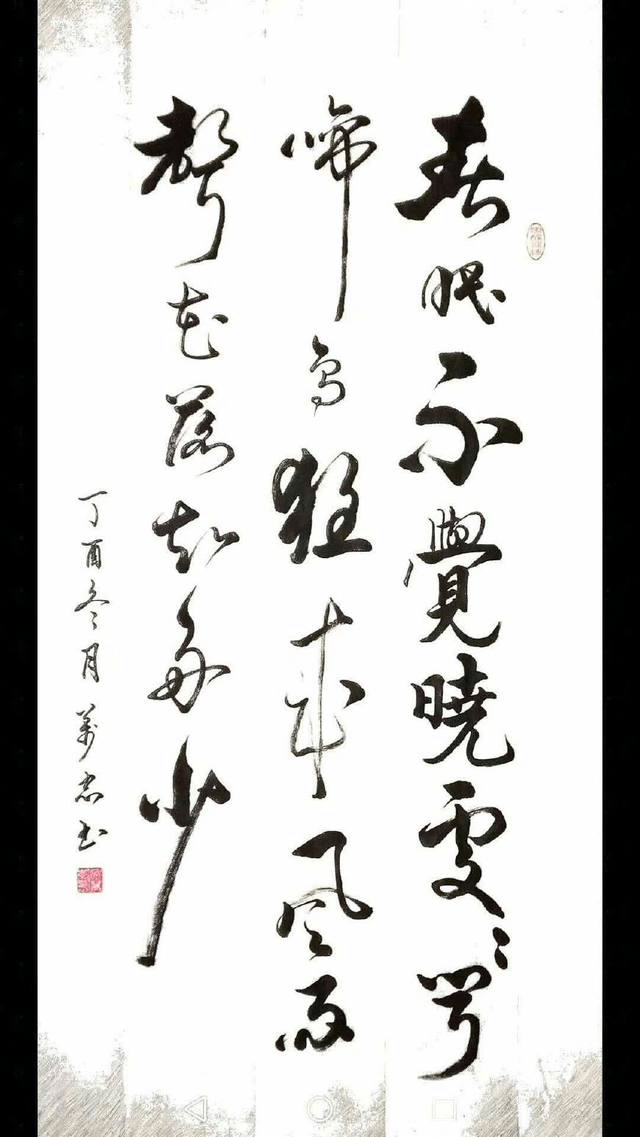 春眠不覺曉處々聞
啼鳥狂來風雨
聲花落知多少
丁酉冬月萬忠书